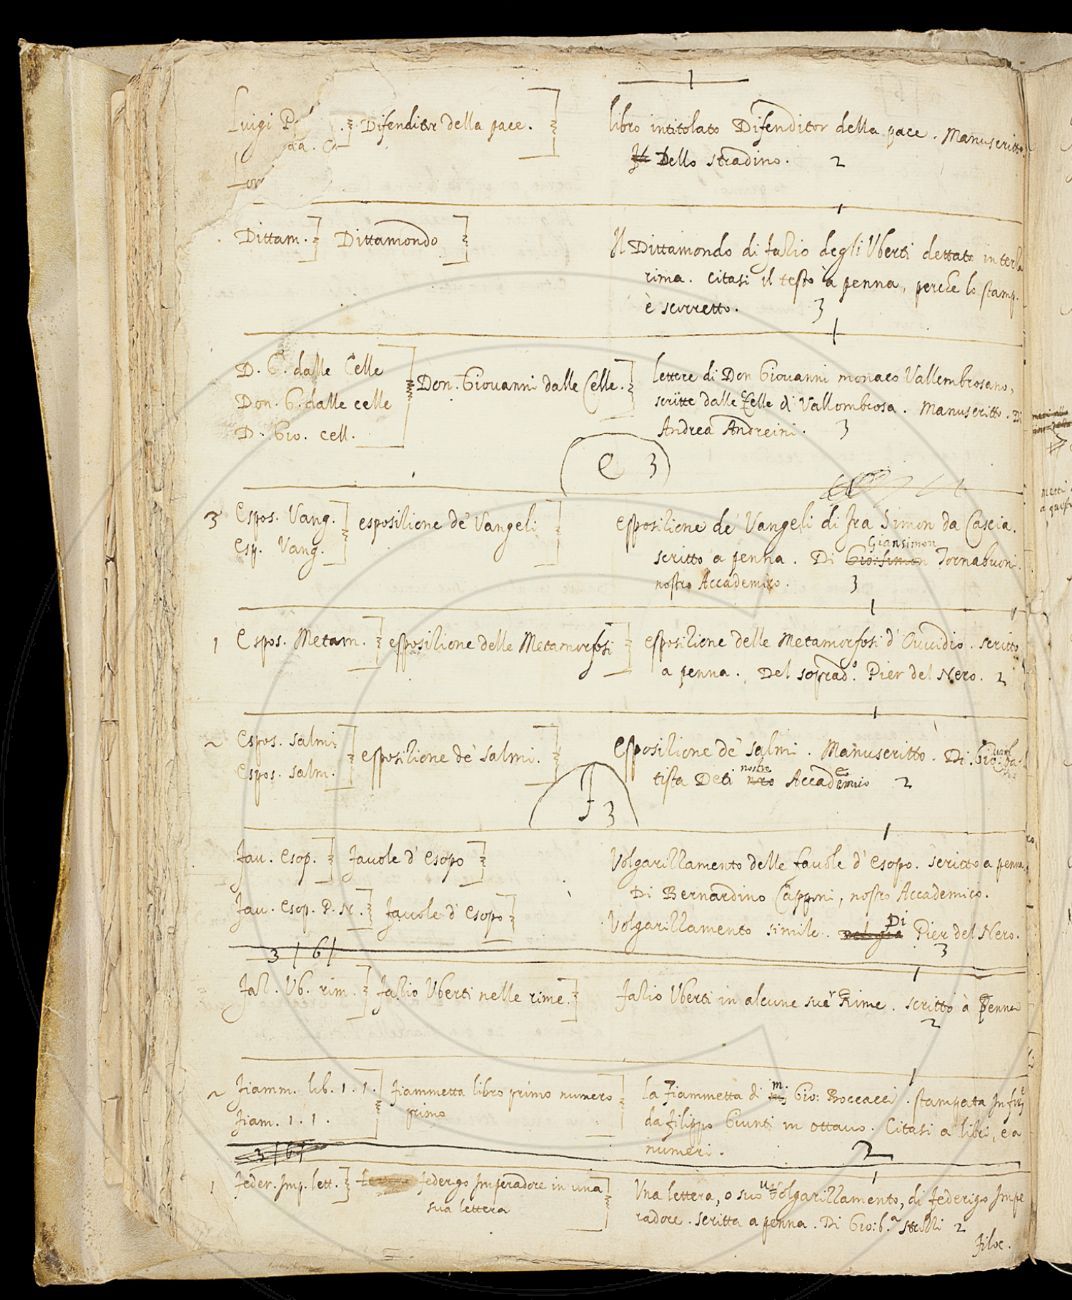 Luigi P
Difenditor della pace.
libro intitolato Difenditor della pace. Manuscritto
Dello stradino. 2
Dittam. Dittamondo
Il Dittamondo di fazio degli Vberti dettato in terza
rima. Citasi il testo à penna, perche lo stamp.
è scorretto. 3
D. G. dalle Celle
Don. G. dalle celle
D. Gio. cell.
Don. Giouanni dalle Celle.
lettere di Don Giouanni monaco Vallembrosano,
scritte dalle Celle di Vallombrosa. Manuscritto. Di
Andrea Andreini. 3
E 3
3 Espos. Vang.
Esp. Vang.
esposizione de' Vangeli
Esposizione de' Vangeli di fra Simon da Cascia.
scritto a penna. Di Giansimon Tornabuoni.
nostro Accademico. 3
1 Espos. Metam. esposizione delle Metamorfosi
esposizione delle Metamorfosi d' Ouuidio. scritto
a penna. Del soprad.o Pier del Nero. 2
Espos. salmi
Espos. salm.
esposizione de' salmi.
Esposizione de' salmi. Manuscritto. Di Gio: ba
tista Deti nostro Accademico 2
F 3
Fau. Esop. Fauole d' Esopo
Volgarizzamento delle fauole d' Esopo. scritto a penna
Di Bernardino Capponi, nostro Accademico.
Fau. Esop. P. N. Fauole d' Esopo
Volgarizzamento simile. Di Pier del Nero.
3
3 | 6 |
Faz. Vb. rim. fazio Vberti nelle rime.
Fazio Vberti in alcune sue Rime. scritto à penna
2
Fiamm. lib. 1. 1.
Fiam. 1. 1.
Fiammetta libro primo numero
primo
la Fiammetta di m. Gio: Boccacci. stampata in
da filippo Giunti in ottauo. Citasi a libri, e a
numeri. 2
3 | 6 |
1 Feder. Imp. lett. federigo Imperadore in una
sua lettera
Vna lettera, o suo Volgarizzamento, di federigo Impe
radore. scritta a penna. Di Gio: b.a 2
Filoc.